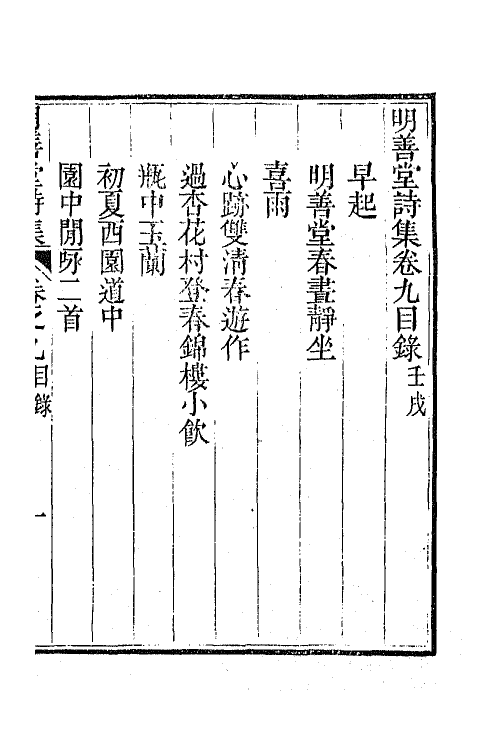 明善堂詩集卷九目錄 壬戌
早起
明善堂春晝靜坐
喜雨
心跡雙清春遊作
過杏花村登春錦樓小飲
瓶中玉蘭
初夏西園道中
園中閒咏二首
明善堂詩集 卷之九目錄 一